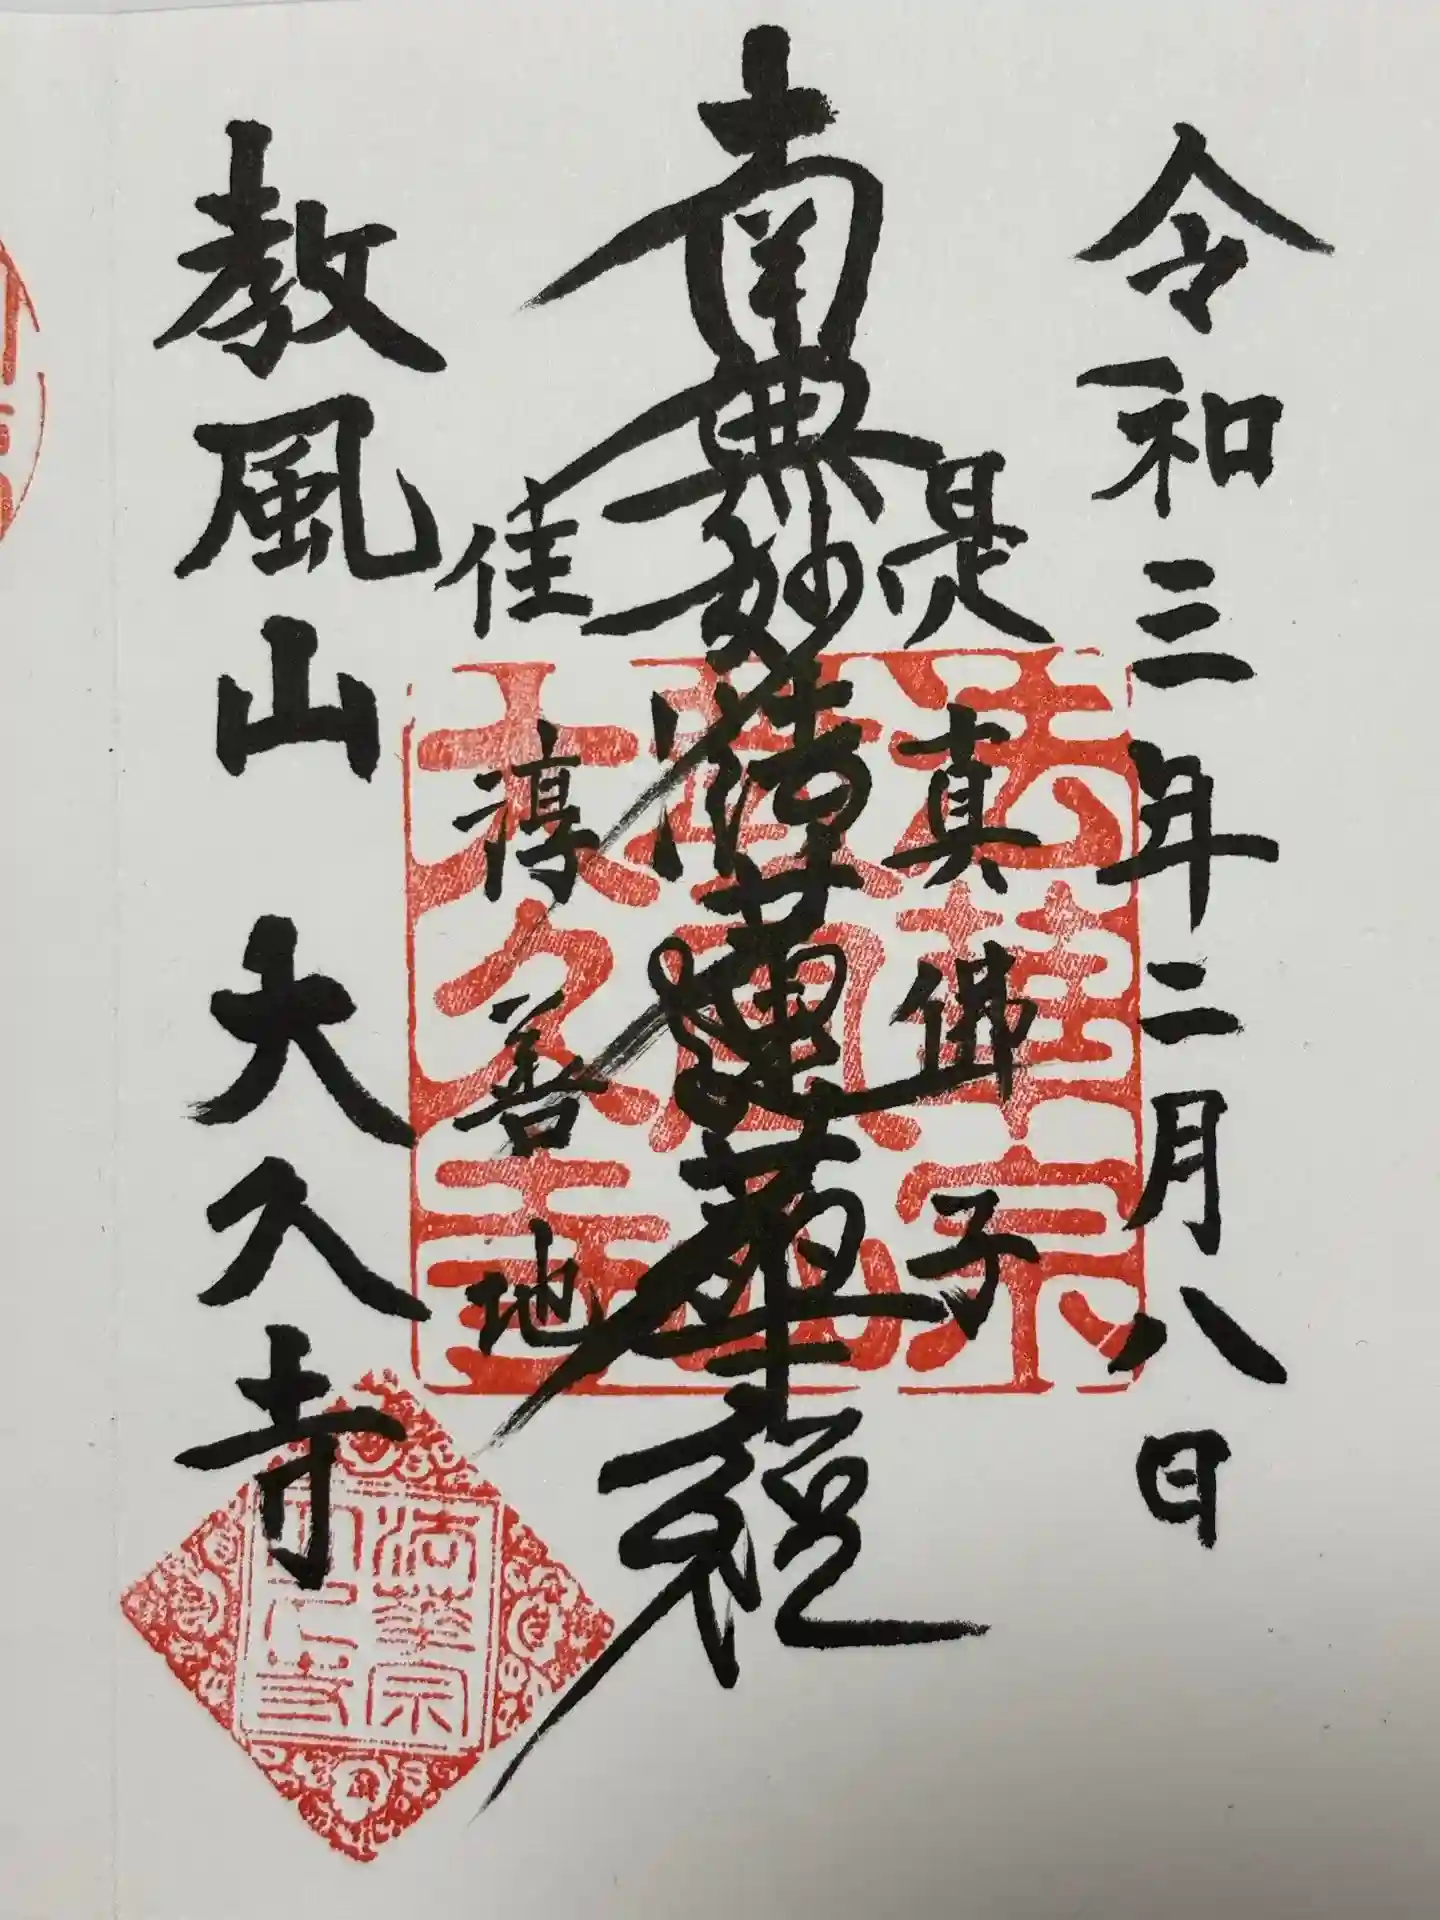 令和三年二月八日
是真佛子
南無妙法蓮華経
住淳善地
教風山 大久寺
法華宗
教風山
大久寺
法華宗